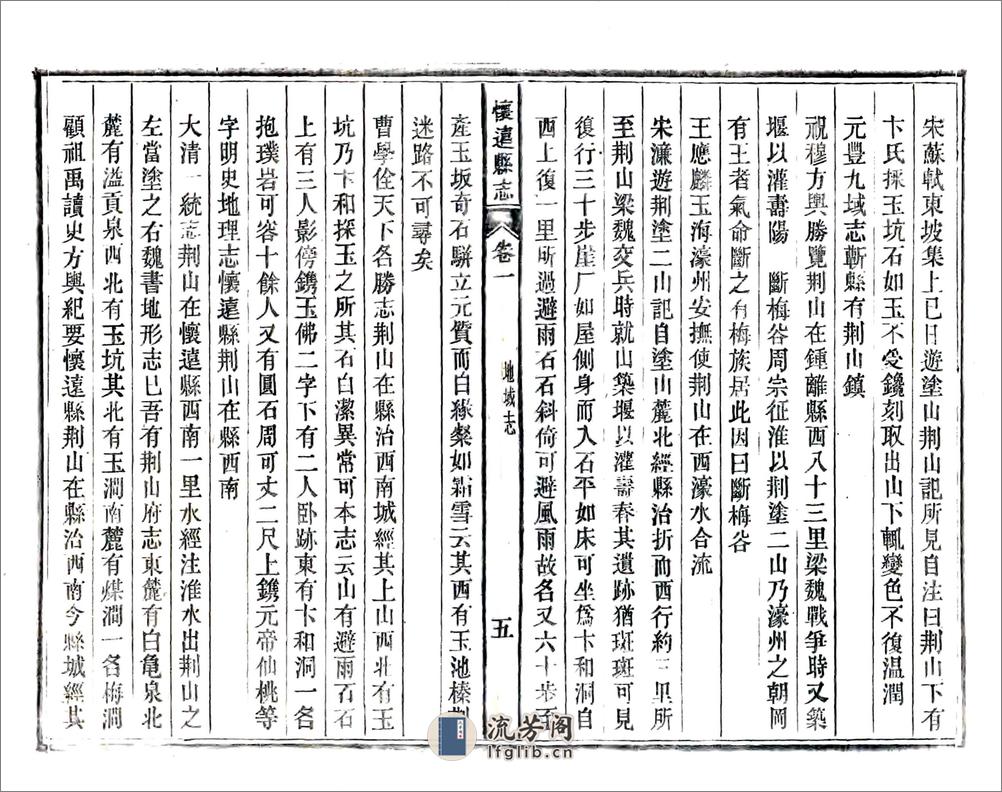 宋蘇軾東坡集上巳日遊塗山荆山記所見自注曰荆山下有
卞氏採玉坑石如玉不受鑱刻取出山下輒變色不復温潤
元豐九域志蘄縣有荆山鎮
祝穆方輿勝覽荆山在鍾離縣西八十三里梁魏戰爭時又築
堰以灌壽陽 斷梅谷周宗征淮以荆塗二山乃濠州之朝岡
有王者氣命斷之有梅族居此因曰斷梅谷
王應麟玉海濠州安撫使荆山在西濠水合流
宋濂遊荆塗二山記自塗山麓北經縣治折而西行約三里所
至荆山梁魏交兵時就山築堰以灌壽春其遺跡猶斑斑可見
復行三十步崖厂如屋側身而入石平如床可坐爲卞和洞自
西上復一里所過避雨石石斜倚可避風雨故名又六十步至
懷遠縣志 卷一 地域志 五
產玉坂奇石駢立元質而白緣粲如點雪云其西有玉池榛
迷路不可尋矣
曹學佺天下名勝志荆山在縣治西南城經其上山西北有玉
坑乃卞和採玉之所其石白潔異常可本志云山有避雨石石
上有三人影傍鐫玉佛二字下有二人卧跡東有卞和洞一名
抱璞岩可容十餘人又有圓石周可丈二尺上鐫元帝仙桃等
字明史地理志懷遠縣荆山在縣西南
大清一統志荆山在懷遠縣西南一里水經注淮水出荆山之
左當塗之右魏書地形志已吾有荆山府志東麓有白龜泉北
麓有溢貢泉西北有玉坑其北有玉澗南麓有煤澗一名梅澗
顧祖禹讀史方輿紀要懷遠縣荆山在縣治西南今縣城經其
流芳阁
lfglib.cn